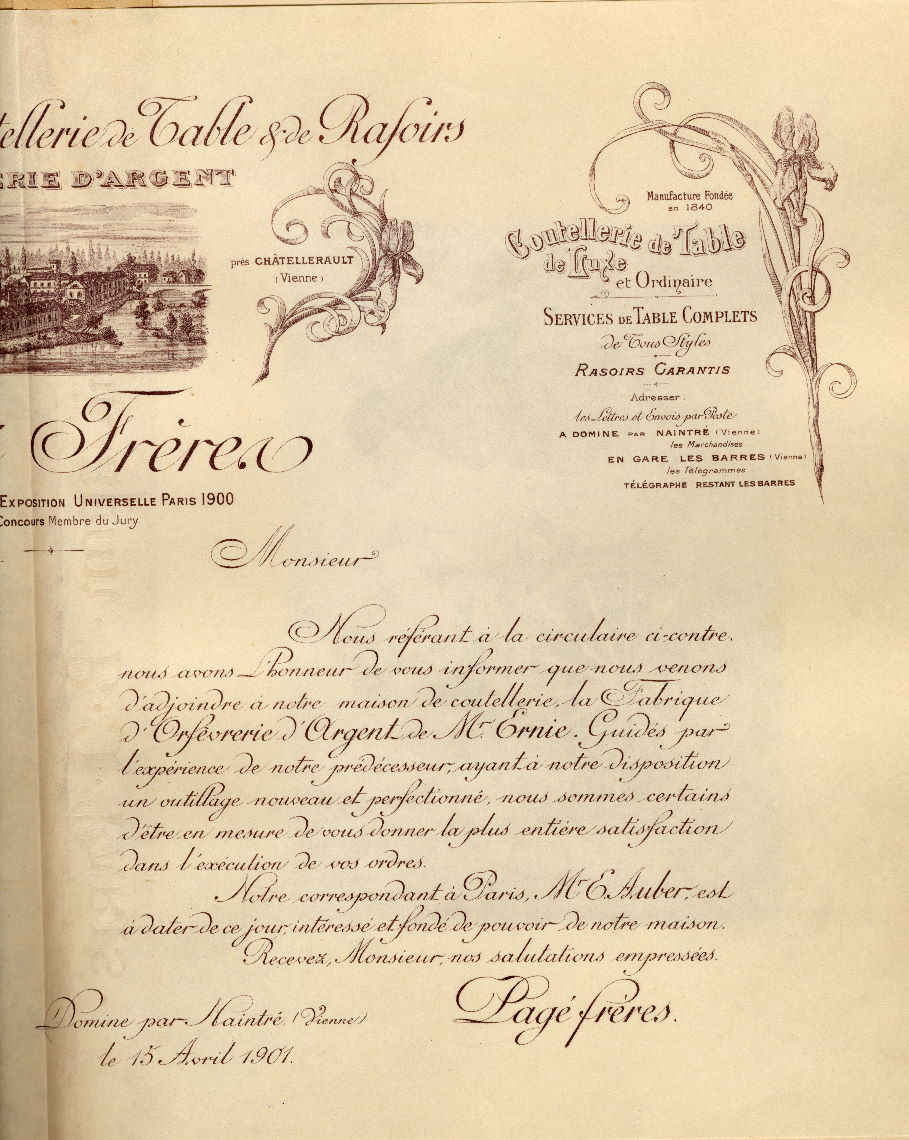 tellerie de Table & de Rasoirs
ERIE D'ARGENT
près CHÂTELLERAULT
(Vienne)
Frères
EXPOSITION UNIVERSELLE PARIS 1900
Concours Membre du Jury
Manufacture Fondée
en 1840
Coutellerie de Table
de Luxe
et Ordinaire
SERVICES DE TABLE COMPLETS
de Tous Styles
RASOIRS GARANTIS
Adresser :
les Lettres et Envois par Poste
A DOMINE PAR NAINTRÉ (Vienne)
les Marchandises
EN GARE LES BARRES (Vienne)
les Télégrammes
TÉLÉGRAPHE RESTANT LES BARRES
Monsieur
Nous référant à la circulaire ci-contre,
nous avons l'honneur de vous informer que nous venons
d'adjoindre à notre maison de coutellerie, la Fabrique
d'Orfèvrerie d'Argent de Mr Ernie. Guidés par
l'expérience de notre prédécesseur, ayant à notre disposition
un outillage nouveau et perfectionné, nous sommes certains
d'être en mesure de vous donner la plus entière satisfaction
dans l'exécution de vos ordres.
Notre correspondant à Paris, Mr E. Auber, est
à dater de ce jour, intéressé et fondé de pouvoir de notre maison.
Recevez, Monsieur, nos salutations empressées.
Pagé frères.
Domine par Naintré (Vienne)
le 15 Avril 1901.